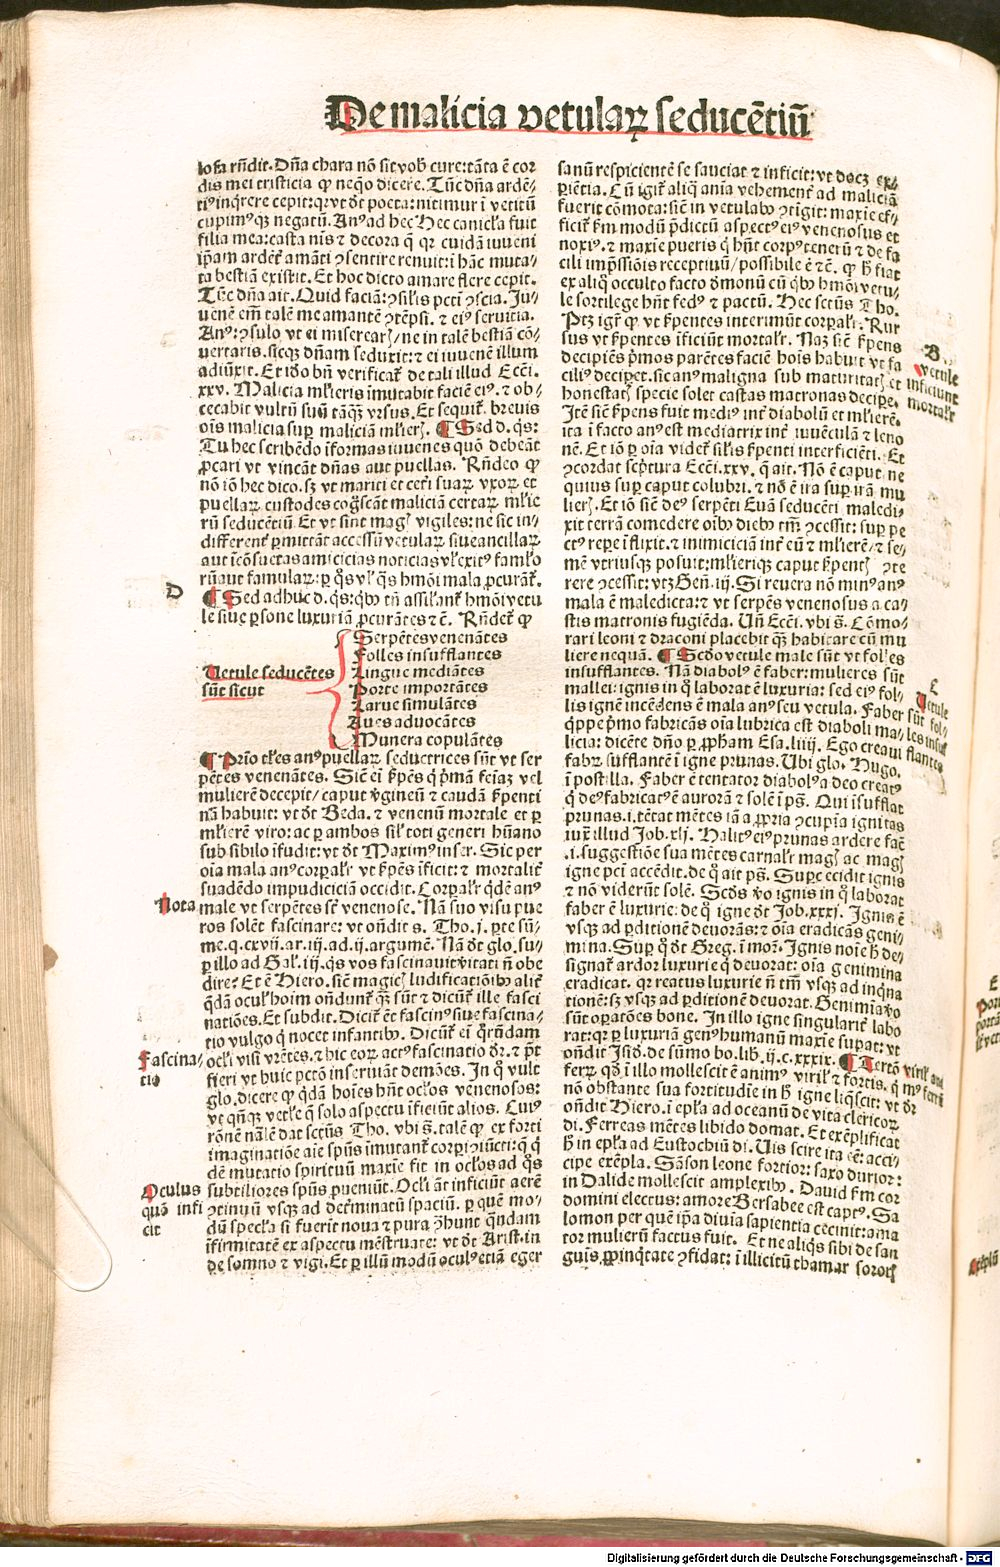 De malicia vetulaꝝ seducẽtiũ
losa rñdit. Dña chara nõ sit vob̃ cure: tãta ẽ cor
dis mei tristicia ꝙ neq̃o dicere. Tũc dña ardẽ/
ti⁹ inq̃rere cepit: qꝛ vt dt̃ poeta: nitimur ĩ vetitũ
cupim⁹qꝫ negatũ. An⁹ ad hec Hec canicl̃a fuit
filia mea: casta nĩs ⁊ decora q̃ qꝛ cuidã iuueni
ip̃am ardẽt̃ amãti ꝯsentire renuit: ĩ hãc muta/
ta bestiã existit. Et hoc dicto amare flere cepit.
Tũc dña ait. Quid faciã: ꝯsil̃is pcti ꝯscia. Ju/
uenẽ em̃ talẽ me amantẽ ꝯtẽpsi. ⁊ ei⁹ seruitia.
An⁹: ꝯsulo vt ei miserearꝭ/ne in talẽ bestiã cõ/
uertaris. sicqꝫ dñam seduxit: ⁊ ei iuuenẽ illum
adiũxit. Et iõo bñ verificat̃ de tali illud Ecc̃i.
xxv. Malicia ml̃ieris ĩmutabit faciẽ ei⁹. ⁊ ob/
cecabit vultũ suũ tãq̃ꝫ vrsus. Et sequit̃. breuis
oĩs malicia suꝑ maliciã ml̃ierꝭ. ¶ Sed d. q̃s:
Tu hec scribẽdo ĩformas iuuenes quõ debeãt
ꝓcari vt vincãt dñas aut puellas. Rñdeo ꝙ
nõ iõ hec dico. sꝫ vt mariti et cet̃i suaꝝ vxoꝝ et
puellaꝝ custodes cog̃scãt maliciã certaꝝ ml̃ie
rũ seducẽtiũ. Et vt sint magꝭ vigiles: ne sic in/
differenẽt ꝑmittãt accessũ vetulaꝝ siue ancillaꝝ
aut ĩcõsuetas amicicias noticias vl̃ exit⁹ faml̃o
rũ aut famulaꝝ: ꝑ q̃s vl̃ q̃s hmõi mala ꝓcurãt̃.
D
¶ Sed adhuc d. q̃s: q̃bꝫ tñ assil̃ant̃ hmõi vetu
le siue ꝑsone luxuriã ꝓcurãtes ⁊c̃. Rñdet̃ ꝙ
Vetule seducẽtes
sũt sicut
Serpẽtes venenãtes
Folles insufflantes
Lingue mediãtes
Porte importãtes
Larue simulãtes
Aues aduocãtes
Munera copulãtes
¶ Prĩo tl̃es an⁹ puellaꝝ seductrices sũt vt ser
pẽtes venenãtes. Sic̃ ei s̃pẽs q̃ p̃mã feĩaꝫ vel
mulierẽ decepit/caput v̓gineũ ⁊ caudã s̃penti
nã habuit: vt dt̃ Beda. ⁊ venenũ mortale et ꝑ
ml̃ierẽ viro: ac ꝑ ambos sil̃ toti generi hũano
sub sibilo ĩfudit: vt dt̃ Maxim⁹ in ser. Sic per
oĩa mala an⁹ corꝑalr̃ vt s̃pẽs ĩficit: ⁊ mortalit̃
suadẽdo impudiciciã occidit. Corꝑalr̃ q̃dẽ an⁹
Nota
male vt serpẽtes st̃ venenose. Nã suo visu pue
ros solẽt fascinare: vt oñdit s. Tho. j. ꝑte sũ/
me. q. cxvij. ar. iij. ad. ij. argumẽ. Nã dt̃ glo. su/
ꝑ illo ad Gal̃. iij. q̃s vos fascinauit v̓itati ñ obe
dire? Et ẽ Hiero. sic̃ magicꝭ ludificatiõibꝫ alit̃
q̃dã ocul̃ hoĩm oñdunt̃ q̃ꝫ sũt ⁊ dicũt̃ ille fasci
natiões. Et subdit. Dicit̃ ẽt fascin⁹ siue fascina/
tio vulgo q̃ nocet infantibꝫ. Dicũt̃ ei q̃rũdam
Fascina/
tio
ocl̃i visi vrẽtes. ⁊ hic eoꝝ act⁹ fascinatio dr̃. ⁊ p̃t
fieri vt huic pctõ inseruiãt demões. In q̃ vult
glo. dicere ꝙ q̃dã hoĩes hñt ocl̃os venenosos:
vt q̃nq̃ꝫ vetl̃e q̃ solo aspectu ĩficiũt alios. Cui⁹
rõnẽ nãlẽ dat sct̃us Tho. vbi s̃. talẽ ꝙ ex forti
imaginatiõe aĩe sp̃us ĩmutant̃ corpi ꝯiũcti: q̃ q̃
dẽ mutatio spirituũ maxĩe fit in ocl̃os ad q̃s
Oculus
quã infi
cit
subtiliores sp̃us ꝑueniũt. Ocl̃i ãt inficiũt aerẽ
ꝯtinuũ vsqꝫ ad det̓minatũ spaciũ. ꝑ quẽ mo/
dũ specl̃a si fuerit noua ⁊ pura ꝯ̃hunt q̃ndam
ĩfirmitatẽ ex aspectu mẽstruate: vt dt̃ Arist. in
de somno ⁊ vigi. Et ꝑ illũ modũ ocul⁹ etiã eger
sanũ respicientẽ se sauciat ⁊ inficit: vt docꝫ ex/
ꝑiẽtia. Cũ igit̃ aliq̃ anĩa vehement̓ ad maliciã
fuerit cõmota: sic̃ in vetulabꝫ ꝯtĩgit: maxĩe ef/
ficit̃ s̃m modũ p̃dictũ aspect⁹ ei⁹ venenosus et
noxi⁹. ⁊ maxĩe pueris q̃ hñt corp⁹ tenerũ ⁊ de fa
cili imp̃ssiõis receptiuũ/possibile ẽ ⁊c̃. ꝙ h̃ fiat
ex aliq̃ occulto facto demonũ cũ q̃bꝫ hmõi vetu/
le sortilege hñt fed⁹ ⁊ pactũ. Hec sct̃us Tho.
Ptꝫ igit̃ ꝙ vt s̃pentes interimũt corꝑalr̃. Rur
sus vt s̃pentes ĩficiũt mortalr̃. Naꝫ sic̃ s̃pens
B
vetule
inficiunt
mortalr̃
decipiẽs p̃mos parẽtes faciẽ hoĩs habuit vt fa
cili⁹ deciꝑet. sic an⁹ maligna sub maturitatꝭ et
honestatꝭ specie solet castas matronas decipe.
Itẽ sic̃ s̃pens fuit medi⁹ int̃ diabolũ et ml̃ierẽ.
ita ĩ facto an⁹ est mediatrix int̃ iuuẽculã ⁊ leno
nẽ. Et iõ ꝑ oĩa videt̃ sil̃is s̃penti interficiẽti. Et
ꝯcordat scp̃tura Ecc̃i. xxv. q̃ ait. Nõ ẽ caput ne
quius suꝑ caput colubri. ⁊ nõ ẽ ira suꝑ irã mu
lierꝭ. Et iõ sic̃ de⁹ serpẽti Euã seducẽti maledi/
xit terrã comedere oĩbꝫ diebꝫ tm̃ ꝯcessit: suꝑ pe
ct⁹ reꝑe ĩflixit. ⁊ inimiciciã int̃ eũ ⁊ ml̃ierẽ/⁊ se/
mẽ vtriusqꝫ posuit: ml̃ieriqꝫ caput s̃pentꝭ ꝯte
rere ꝯcessit: vtꝫ Geñ. iij. Si reuera nõ min⁹ an⁹
mala ẽ maledicta: ⁊ vt serpẽs venenosus a ca/
stis matronis fugiẽda. Uñ Ecc̃i. vbi s̃. Cõmo/
rari leoni ⁊ draconi placebit q̃ꝫ habitare cũ mu
liere nequã. ¶ Scd̃o vetule male sũt vt folles
insufflantes. Nã diabol⁹ ẽ faber: mulieres sũt
mallei: ignis in q̃ laborat ẽ luxuria: sed ei⁹ fol/
E
Vetule
sũt fol/
les insuf
flantes
lis ignẽ incẽdens ẽ mala an⁹ seu vetula. Faber
q̃ppe p̃mo fabricãs oĩa lubrica est diaboli ma/
licia: dicẽte dño ꝑ ꝓpham Esa. liiij. Ego creaui
fabꝝ sufflantẽ ĩ igne prunas. Ubi glo. Hugo.
ĩ postilla. Faber ẽ tentator diabol⁹ a deo creat⁹
q̃ de⁹ fabricat⁹ ẽ aurorã ⁊ solẽ ĩ ps̃. Qui ĩsufflat
prunas. i. tẽtat mẽtes iã a ꝓpria ꝯcupĩa ignitas
iux̃ illud Job. xlj. Halit⁹ ei⁹ prunas ardere fac̃
.i. suggestiõe sua mẽtes carnalr̃ magꝭ ac magꝭ
igne pcti accẽdit. de q̃ ait ps̃. Supcecidit ignis
⁊ nõ viderũt solẽ. Scd̃s v̓o ignis in q̃ laborat
faber ẽ luxurie: de q̃ igne dt̃ Job. xxxj. Ignis ẽ
vsqꝫ ad ꝑditionẽ deuorãs: ⁊ oĩa eradicãs geni/
mina. Suꝑ q̃ dt̃ Greg. ĩ moral̃. Ignis noĩe h̃ de/
signat̃ ardor luxurie q̃ deuorat: oĩa genimina
eradicat. qꝛ reatus luxurie ñ tm̃ vsqꝫ ad inq̃na
tionẽ: sꝫ vsqꝫ ad ꝑditionẽ deuorat. Genimĩa v̓o
sũt oꝑatões bone. In illo igne singularit̃ labo
rat: qꝛ ꝑ luxuriã gen⁹ humanũ maxĩe suꝑat: vt
oñdit Isid. de sũmo bo. lib. ij. c. xxxix. ¶ Tertõ
ferꝝ q̃d ĩ illo mollescit ẽ anim⁹ viril̃ ⁊ fortis. q̃
nõ obstante sua fortitudĩe in h̃ igne liq̃scit: vt
oñdit Hiero. ĩ epl̃a ad oceanũ de vita clericoꝝ
di. Ferreas mẽtes libido domat. Et exẽplificat
h̃ in epl̃a ad Eustochiũ di. Uis scire ita eẽ: acci/
cipe exẽpla. Sãson leone fortior: saxo durior:
in Dalide mollescit amplexibꝫ. Dauid s̃m cor
domini electus: amore Bersabee est capt⁹. Sa
lomon per quẽ ip̃a diuĩa sapientia cecinit: ama
tor mulierũ factus fuit. Et ne aliq̃s sibi de san
guĩs ꝓpinq̃tate ꝯfidat: ĩ illicitũ thamar sororꝭ
Digitalisierung gefördert durch die Deutsche Forschungsgemeinschaft - DFG